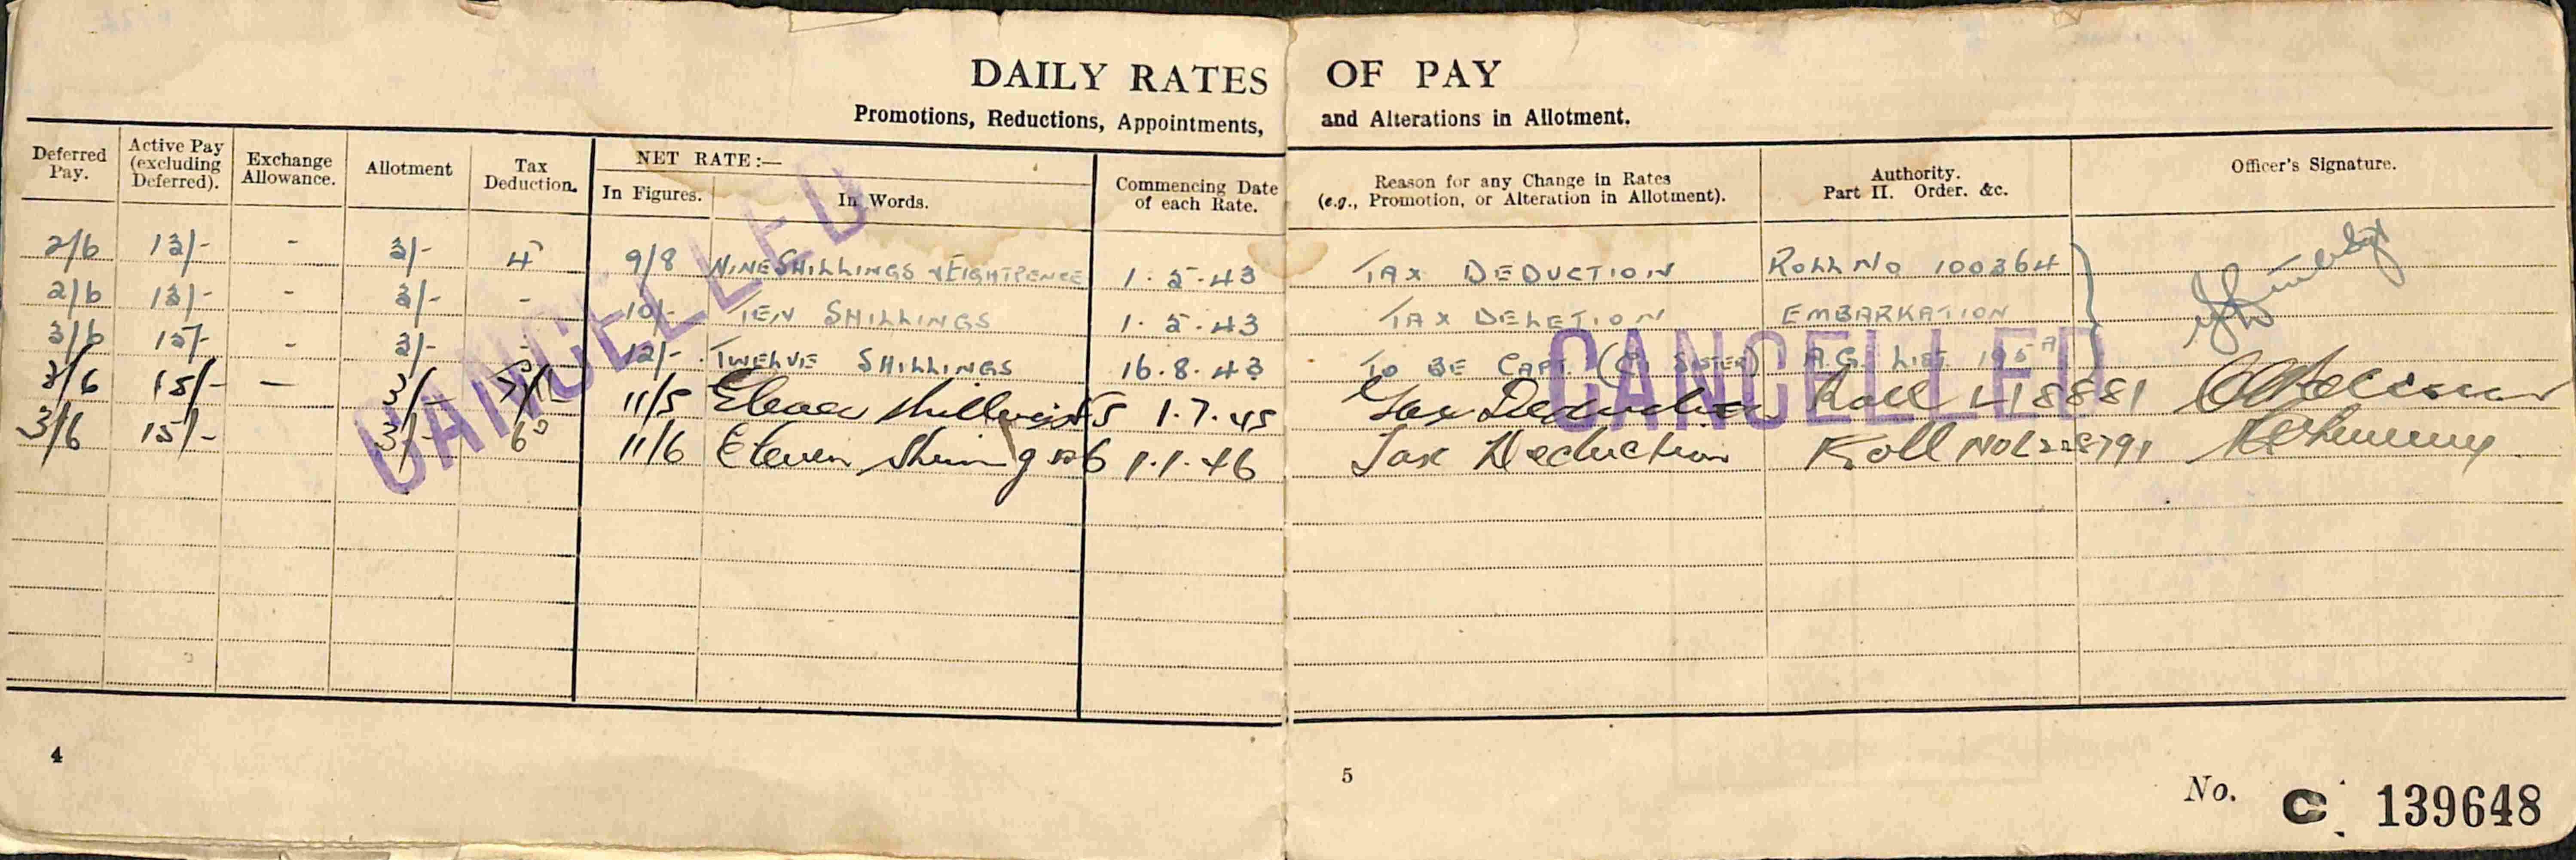 DAILY RATES OF PAY
Promotions, Reductions, Appointments, and Alterations in Allotment.
Deferred Pay. Active Pay (excluding Deferred). Exchange Allowance. Allotment Tax Deduction. NET RATE:— In Figures. In Words. Commencing Date of each Rate. Reason for any Change in Rates (e.g., Promotion, or Alteration in Allotment). Authority. Part II. Order. &c. Officer's Signature.
2/6 13/- - 3/- 4 9/8 NINE SHILLINGS & EIGHTPENCE 1.5.43 TAX DEDUCTION ROLL NO 100364
2/6 13/- - 3/- - 10/- TEN SHILLINGS 1.5.43 TAX DELETION EMBARKATION
3/6 15/- - 3/- - 12/- TWELVE SHILLINGS 16.8.43 TO BE CAPT. (SISTER) A.G. LIST 195A
3/6 15/- — 3/- 11/5 Eleven shillings & 5 1.7.45 Tax Deduction Roll L18881
3/6 15/- 3/- 6D 11/6 Eleven 6 1.1.46 Tax Deduction Roll NO L228791
CANCELLED
CANCELLED
4
5
No. C 139648